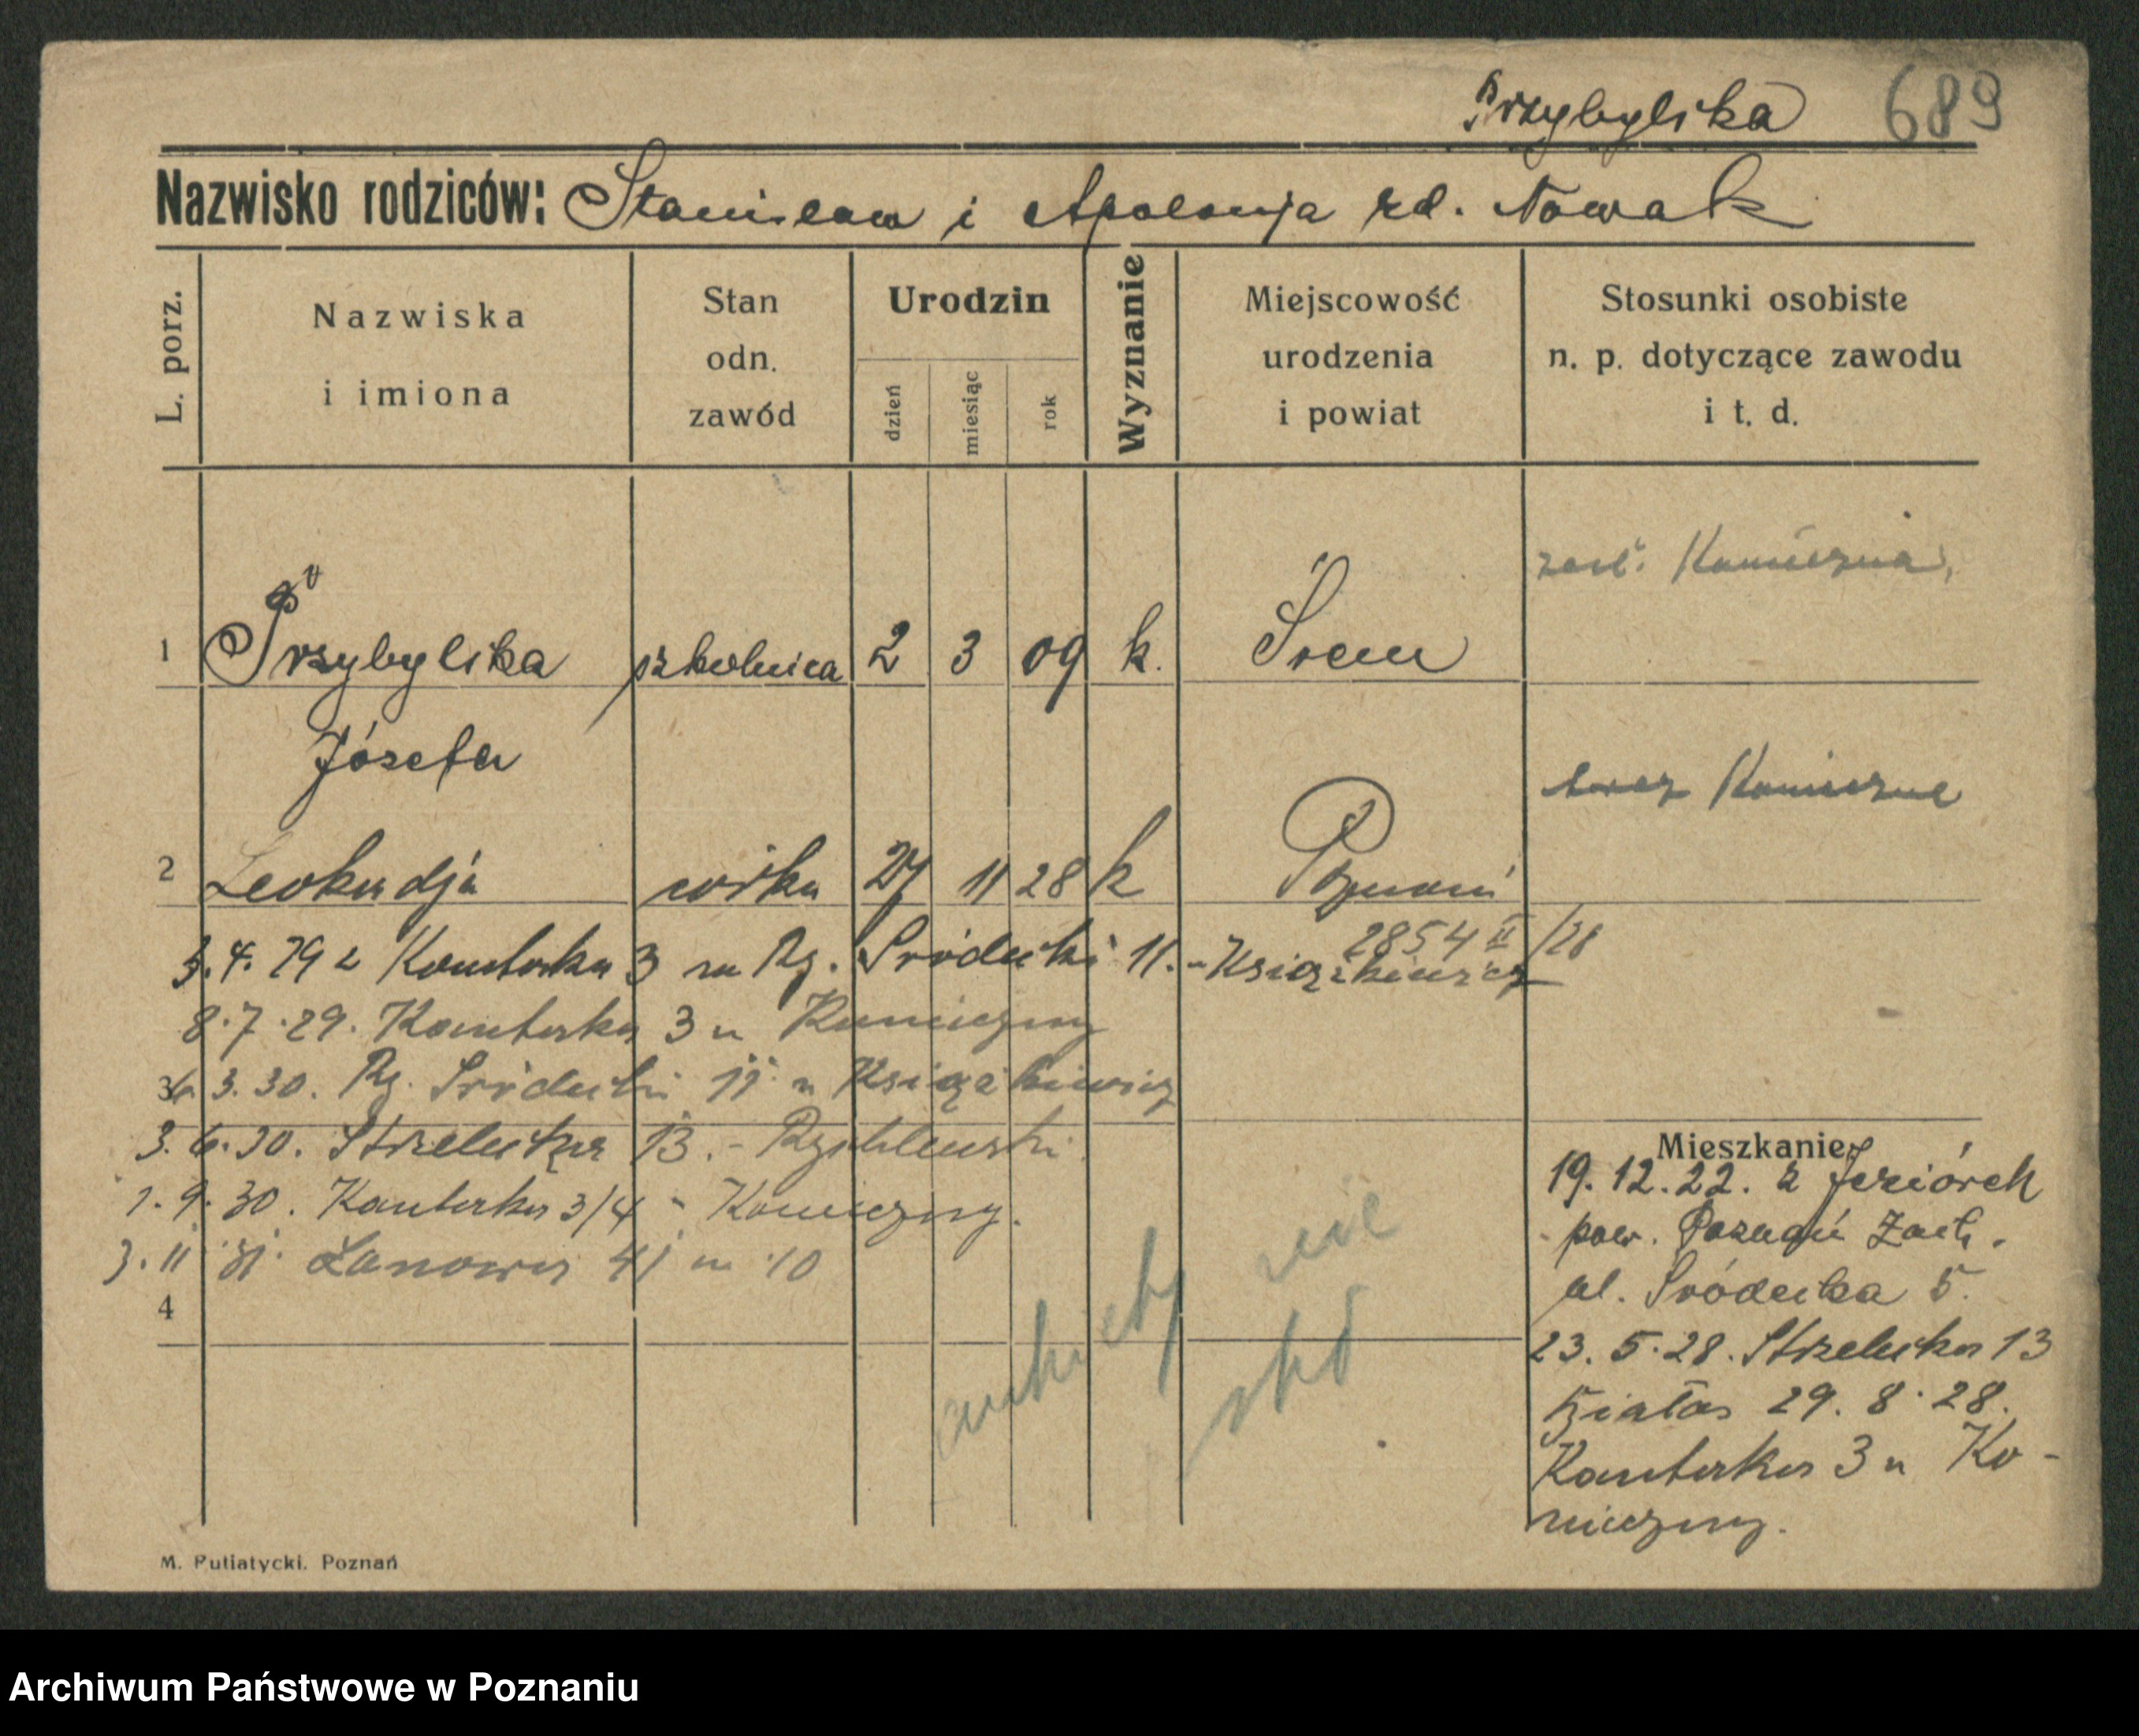 Przybylska 689
Nazwisko rodziców: Stanisław i Apolonja rd. Nowak
L. porz.
Nazwiska
i imiona
Stan
odn.
zawód
Urodzin
dzień
miesiąc
rok
Wyznanie
Miejscowość
urodzenia
i powiat
Stosunki osobiste
n. p. dotyczące zawodu
i t. d.
Konieczna
1 Przybylska 2 3 09 k. Śrem
Józefa
teraz Konieczna
2 Leokadja córka 27 11 28 k Poznań
2854 II/28
3.4.29 z Kantorka 3 na Ry. Śródecki 11. - Książkiewicz
8.7.29. Kantorka 3 u Konieczny
3
3.30. Ry. Śródecki 11 u Książkiewicz
3.6.30. Strzelecka 13. - Rychlewski
1.9.30. Kantorka 3/4 - Konieczny.
3.11.31. Łanowa 41 m 10
4
Mieszkanie
19.12.22. z Jeziórek
pow. Poznań Zach.
ul. Śródecka 5.
23.5.28. Strzelecka 13
Białas 29.8.28.
Kantorka 3 u Ko-
nieczny.
nie
M. Putiatycki. Poznań
Archiwum Państwowe w Poznaniu